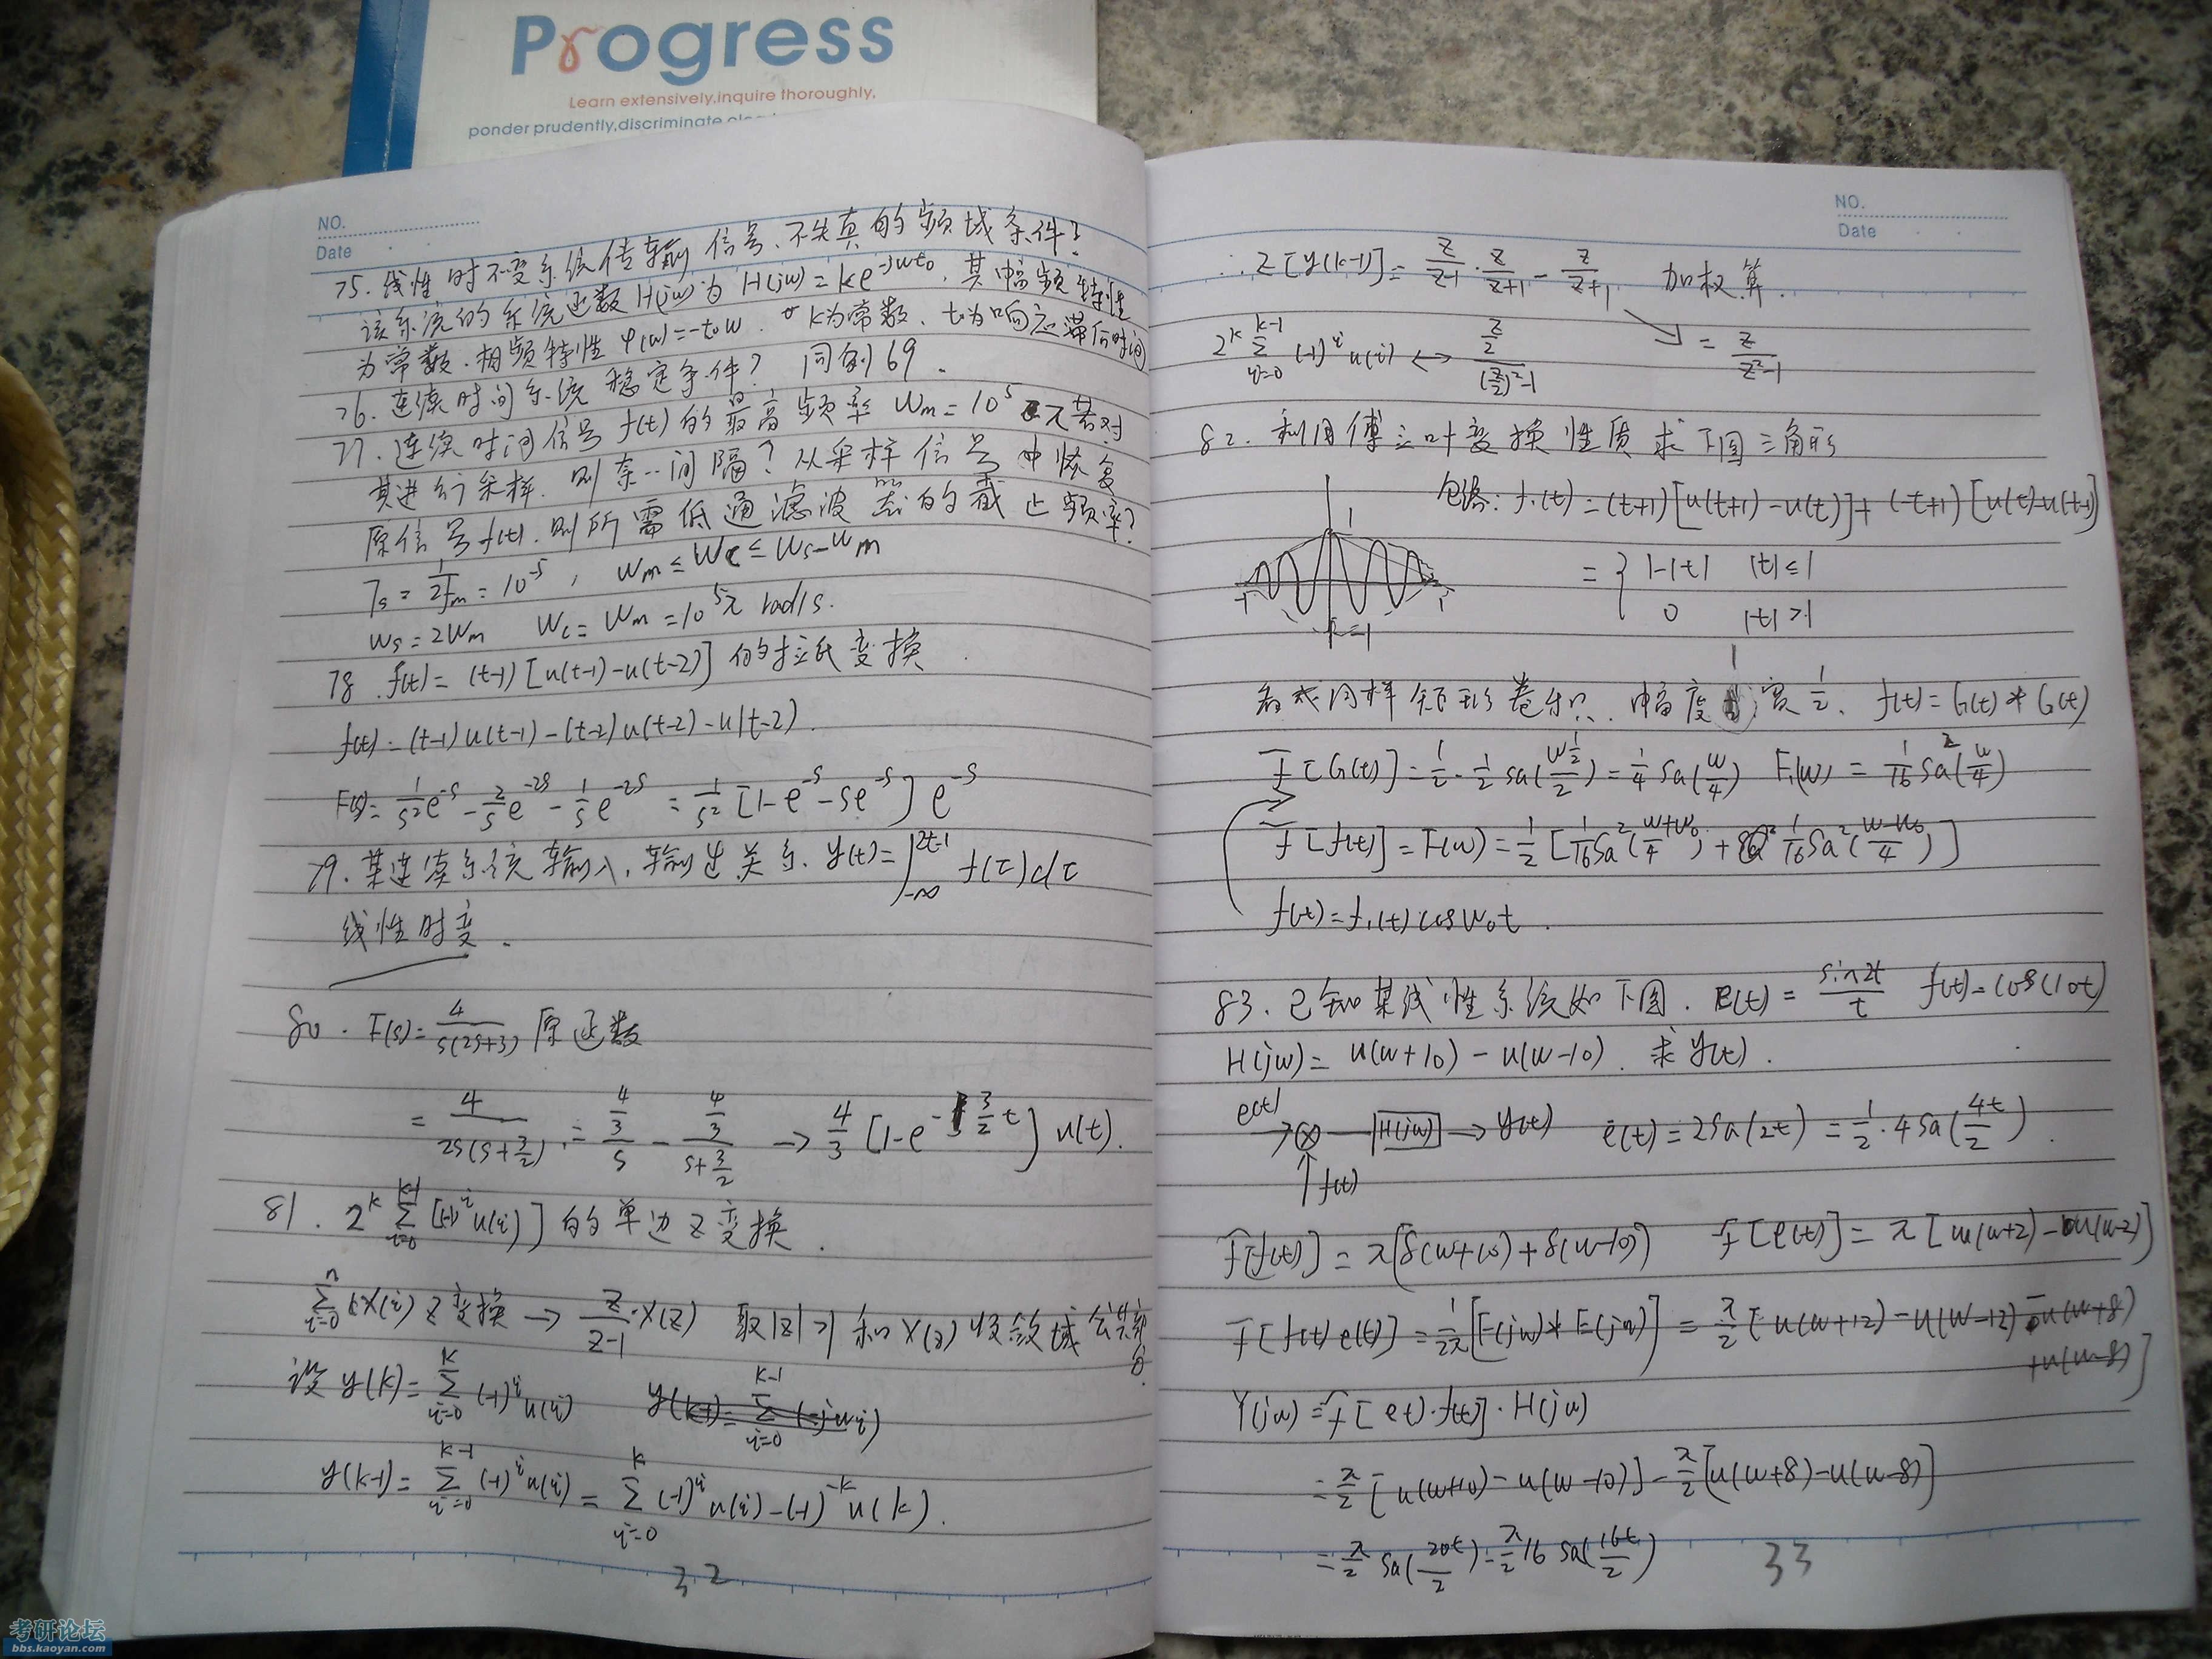 Progress
Learn extensively,inquire thoroughly,
ponder prudently,discriminate
NO.
Date
75. 线性时不变系统传输信号、不失真的频域条件?
该系统的系统函数H(jw)为 H(jw)=ke^{-jwt₀}, 其幅频特性
为常数. 相频特性 φ(w)=-t₀w. k为常数、t₀为响应滞后时间
76. 连续时间系统稳定条件? 同例69.
77. 连续时间信号 f(t)的最高频率 Wm=10⁵π 若对
其进行采样. 则奈..间隔? 从采样信号中恢复
原信号f(t). 则所需低通滤波器的截止频率?
Ts=1/(2fm)=10^{-5}, Wm≤Wc≤Ws-Wm
Ws=2Wm Wc=Wm=10⁵π rad/s.
78. f(t)=(t-1)[u(t-1)-u(t-2)] 的拉氏变换.
f(t)=(t-1)u(t-1)-(t-2)u(t-2)-u(t-2).
F(s)=1/s² e^{-s} - 2/s e^{-2s} - 1/s e^{-2s} = 1/s² [1-e^{-s}-se^{-s}] e^{-s}
79. 某连续系统输入、输出关系. y(t)=∫_{-∞}^{2t-1} f(τ)dτ
线性时变.
80. F(s)=4/(s(2s+3)) 原函数
=4/(2s(s+3/2)) = (4/3)/s - (4/3)/(s+3/2) → 4/3 [1-e^{-3/2 t}] u(t).
81. 2^k Σ_{i=0}^{k-1} [(-1)^i u(i)] 的单边Z变换.
Σ_{i=0}^{n} X(i) Z变换 → z/(z-1)·X(z) 取|z|>1 和X(z)收敛域公共部分.
设 y(k)=Σ_{i=0}^{k} (-1)^i u(i)
y(k-1)=Σ_{i=0}^{k-1} (-1)^i u(i) = Σ_{i=0}^{k} (-1)^i u(i)-(-1)^{-k} u(k).
32
NO.
Date
∴ Z[y(k-1)]=z/(z-1)·z/(z+1)-z/(z+1) 加权算.
=z/(z²-1)
2^k Σ_{i=0}^{k-1} (-1)^i u(i) ↔ (z/2)/((z/2)²-1)
82. 利用傅立叶变换性质求下图三角形
包络: f₁(t)=(t+1)[u(t+1)-u(t)]+(-t+1)[u(t)-u(t-1)]
1
-1
1
={ 1-|t| |t|≤1
0 |t|>1
看成同样矩形卷积. 幅度1 宽1/2. f(t)=G(t)*G(t)
F[G(t)]=1/2·1/2 Sa(w½/2)=1/4 Sa(w/4) F₁(w)=1/16 Sa²(w/4)
F[f(t)]=F(w)=1/2[1/16 Sa²((w+w₀)/4)+1/16 Sa²((w-w₀)/4)]
f(t)=f₁(t)cosW₀t.
83. 已知某线性系统如下图. E(t)=sin2t/t f(t)=cos(10t)
H(jw)=u(w+10)-u(w-10). 求y(t).
e(t)
→⊗—H(jw)→y(t) e(t)=2Sa(2t)=1/2·4Sa(4t/2).
↑f(t)
F[f(t)]=π[δ(w+10)+δ(w-10)] F[e(t)]=π[u(w+2)-u(w-2)]
F[f(t)e(t)]=1/2π[F(jw)*E(jw)]=π/2[u(w+12)-u(w-12)-u(w+8)
+u(w-8)]
Y(jw)=F[e(t)·f(t)]·H(jw)
=π/2[u(w+10)-u(w-10)]-π/2[u(w+8)-u(w-8)]
=π/2 Sa(20t/2)-π/2 16 Sa(16t/2)
33
考研论坛
bbs.kaoyan.com